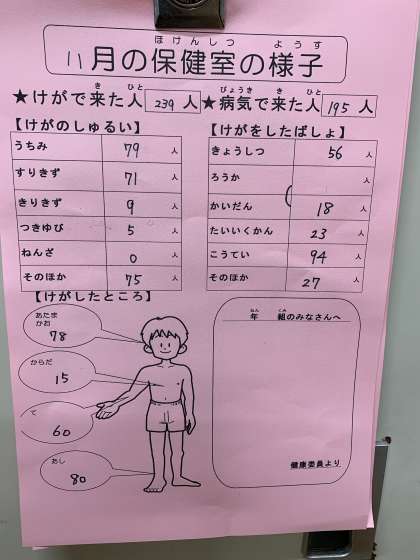 11月の保健室の様子
ほけんしつ ようす
★けがで来た人 239 人 ★病気で来た人 195 人
き ひと びょうき き ひと
【けがのしゅるい】
うちみ 79 人
すりきず 71 人
きりきず 9 人
つきゆび 5 人
ねんざ 0 人
そのほか 75 人
【けがをしたばしょ】
きょうしつ 56 人
ろうか 人
かいだん 18 人
たいいくかん 23 人
こうてい 94 人
そのほか 27 人
【けがしたところ】
あたま
かお
78
からだ
15
て
60
あし
80
年 組のみなさんへ
ねん くみ
健康委員より